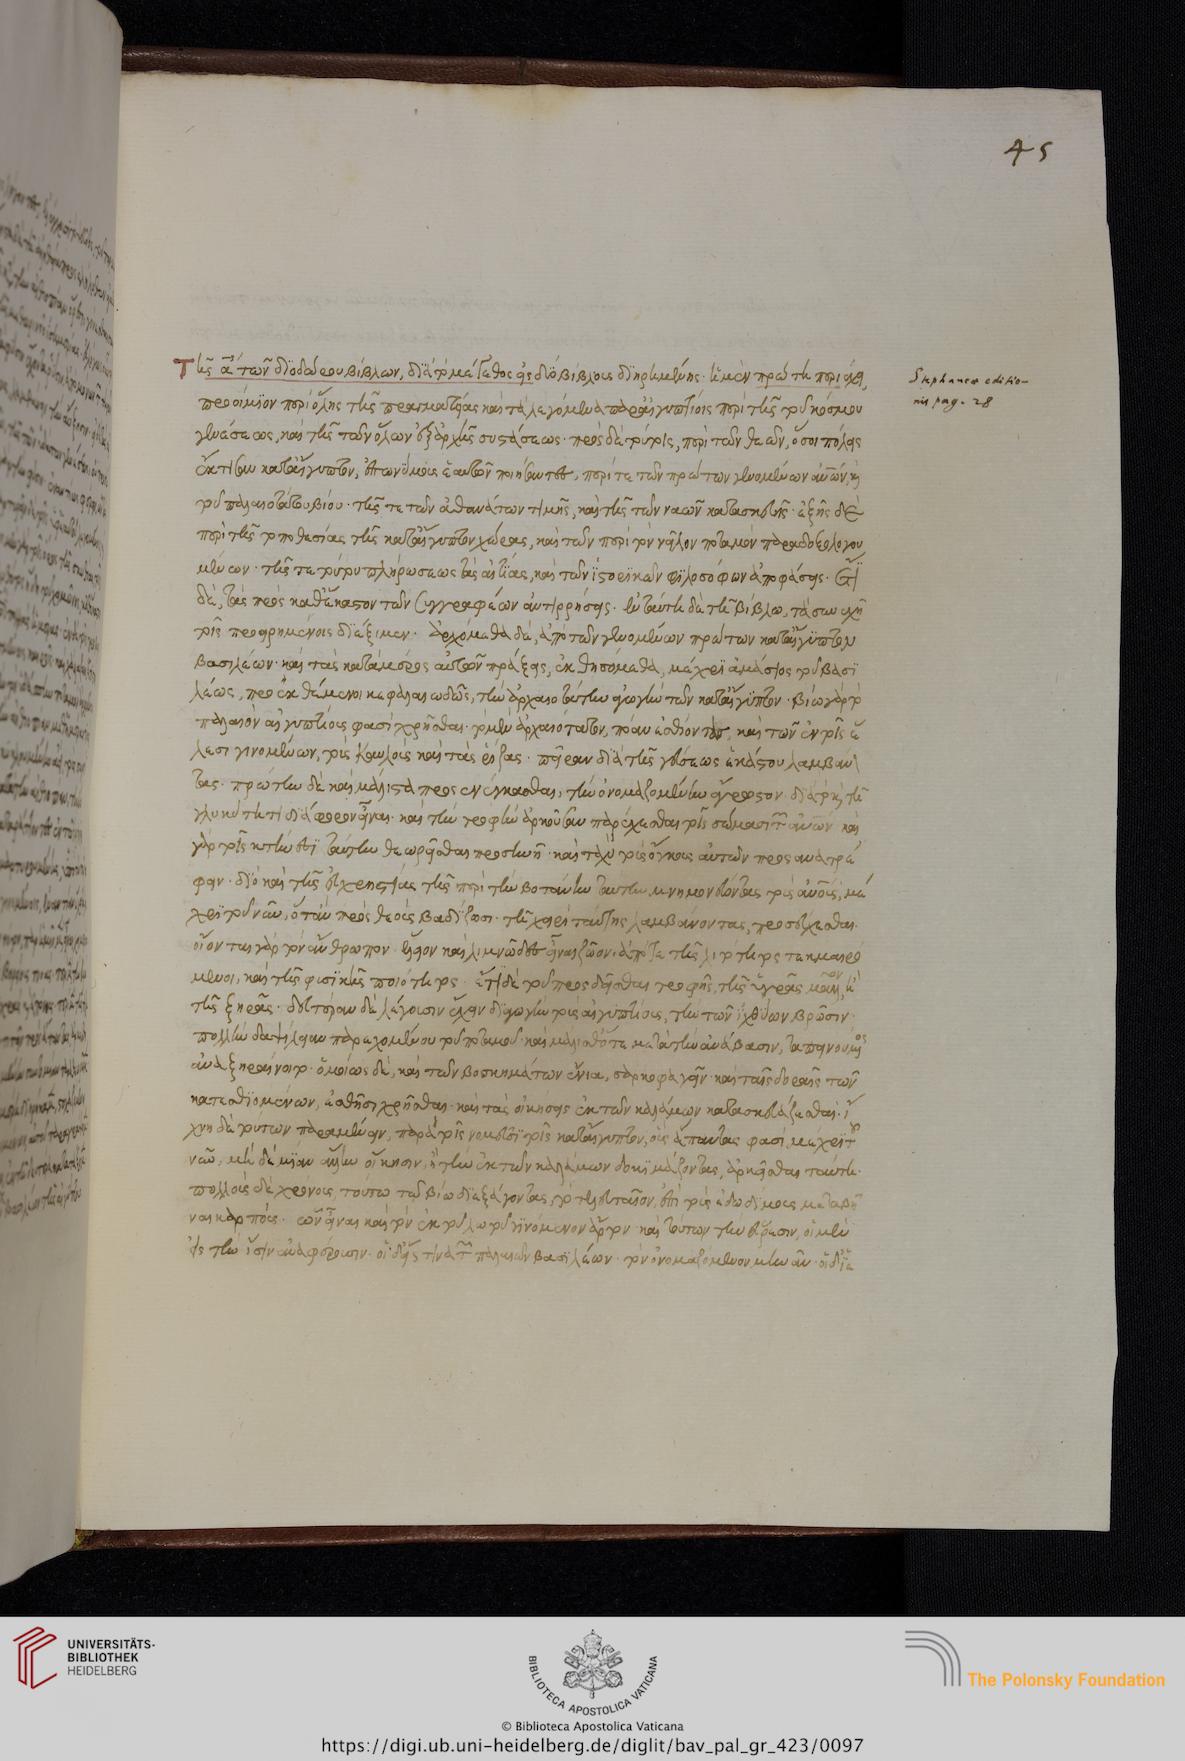 45
Τῆς α´ τῶν διοδώρου βίβλων, διὰ τὸ μέγεθος εἰς δύο βίβλους διῃρημένης· ἡ μὲν πρώτη περιέχει
Stephaneæ editio-
nis pag. 28
προοίμιον περὶ ὅλης τῆς πραγματείας καὶ τὰ λεγόμενα παρ' αἰγυπτίοις περὶ τῆς τοῦ κόσμου
γενέσεως, καὶ τῆς τῶν ὅλων ἐξ ἀρχῆς συστάσεως· πρὸς δὲ τούτοις, περὶ τῶν θεῶν, ὅσοι πόλεις
ἔκτισαν κατ' αἴγυπτον, ἐπωνύμους ἑαυτῶν ποιήσαντες, περί τε τῶν πρώτων γενομένων ἀνθρώπων, καὶ
τοῦ παλαιοτάτου βίου· τῆς τε τῶν ἀθανάτων τιμῆς, καὶ τῆς τῶν ναῶν κατασκευῆς· ἑξῆς δὲ
περὶ τῆς τοποθεσίας τῆς κατ' αἴγυπτον χώρας, καὶ τῶν περὶ τὸν νεῖλον ποταμὸν παραδοξολογου
μένων· τῆς τε τούτου πληρώσεως τὰς αἰτίας, καὶ τῶν ἱστορικῶν φιλοσόφων ἀποφάσεις· ἔτι
δὲ, τὰς πρὸς καθ' ἕκαστον τῶν συγγραφέων ἀντιρρήσεις· ἐν ταύτῃ δὲ τῇ βίβλω, τὰ συνεχῆ
τοῖς προειρημένοις διέξιμεν· ἀρχόμεθα δὲ, ἀπὸ τῶν γενομένων πρώτων κατ' αἴγυπτον
βασιλέων· καὶ τὰς κατὰ μέρος αὐτῶν πράξεις, ἐκθησόμεθα, μέχρι ἀμάσιος τοῦ βασι
λέως, προεκθέμενοι κεφαλαιωδῶς, τὴν ἀρχαιοτάτην ἀγωγὴν τῶν κατ' αἴγυπτον· βίω γὰρ τὸ
παλαιὸν αἰγυπτίους φασὶ χρῆσθαι· τὸ μὲν ἀρχαιότατον, πόαν ἐσθίοντας, καὶ τῶν ἐν τοῖς ἕ
λεσι γινομένων, τοὺς καυλοὺς καὶ τὰς ῥίζας· πεῖραν διὰ τῆς γεύσεως ἑκάστου λαμβάνον
τας· πρώτην δὲ καὶ μάλιστα προσενέγκασθαι, τὴν ὀνομαζομένην ἄγρωστον· διὰ τὸ καὶ τῇ
γλυκύτητι διάφορον εἶναι· καὶ τὴν τροφὴν ἀρκοῦσαν παρέχεσθαι τοῖς σώμασι τῶν ἀνθρώπων· καὶ
γὰρ τοῖς κτήνεσι ταύτην θεωρεῖσθαι προσηνῆ· καὶ ταχὺ τοὺς ὄγκους αὐτῶν προσανατρέ
φειν· διὸ καὶ τῆς εὐχρηστίας τῆς περὶ τὴν βοτάνην ταύτην μνημονεύοντας τοὺς ἀνθρώπους, μέ
χρι τοῦ νῦν, ὅταν πρὸς θεοὺς βαδίζωσι· τῇ χειρὶ ταύτης λαμβάνοντας, προσεύχεσθαι·
οἴονται γὰρ τὸν ἄνθρωπον ἕλειον καὶ λιμνῶδες εἶναι ζῶον· ἀπό τε τῆς λιτότητος τεκμαιρό
μενοι, καὶ τῆς φυσικῆς ποιότητος· ἔτι δὲ τοῦ προσδεῖσθαι τροφῆς, τῆς ὑγρᾶς μᾶλλον, ἢ
τῆς ξηρᾶς· δευτέραν δὲ λέγουσιν ἔχειν διαγωγὴν τοὺς αἰγυπτίους, τὴν τῶν ἰχθύων βρῶσιν·
πολλὴν δαψίλειαν παρεχομένου τοῦ ποταμοῦ· καὶ μάλισθ' ὅτε μετὰ τὴν ἀνάβασιν, ταπεινούμενος
ἀναξηραίνοιτο· ὁμοίως δὲ, καὶ τῶν βοσκημάτων ἔνια, σαρκοφαγεῖν· καὶ ταῖς δοραῖς τῶν
κατεσθιομένων, ἐσθῆσι χρῆσθαι· καὶ τὰς οἰκήσεις ἐκ τῶν καλάμων κατασκευάζεσθαι· ἴ
χνη δὲ τούτων παραμένειν, παρὰ τοῖς νομεῦσι τοῖς κατ' αἴγυπτον, οὓς ἅπαντας φασὶ, μέχρι τοῦ
νῦν, μὴ δὲ μίαν ἄλλην οἴκησιν, ἢ τὴν ἐκ τῶν καλάμων δοκιμάζοντας, ἀρκεῖσθαι ταύτῃ·
πολλοὺς δὲ χρόνους, τούτω τῶ βίω διεξάγοντας, τὸ τελευταῖον, ἐπὶ τοὺς ἐδωδίμους μεταβῆ
ναι καρποὺς· ὧν εἶναι καὶ τὸν ἐκ τοῦ λωτοῦ γινόμενον ἄρτον· καὶ τούτων τὴν εὕρεσιν, οἱ μὲν
εἰς τὴν ἴσιν ἀναφέρουσιν· οἱ δ' εἴς τινα τῶν παλαιῶν βασιλέων· τὸν ὀνομαζόμενον μηνᾶν· οἱ δ' ἱε